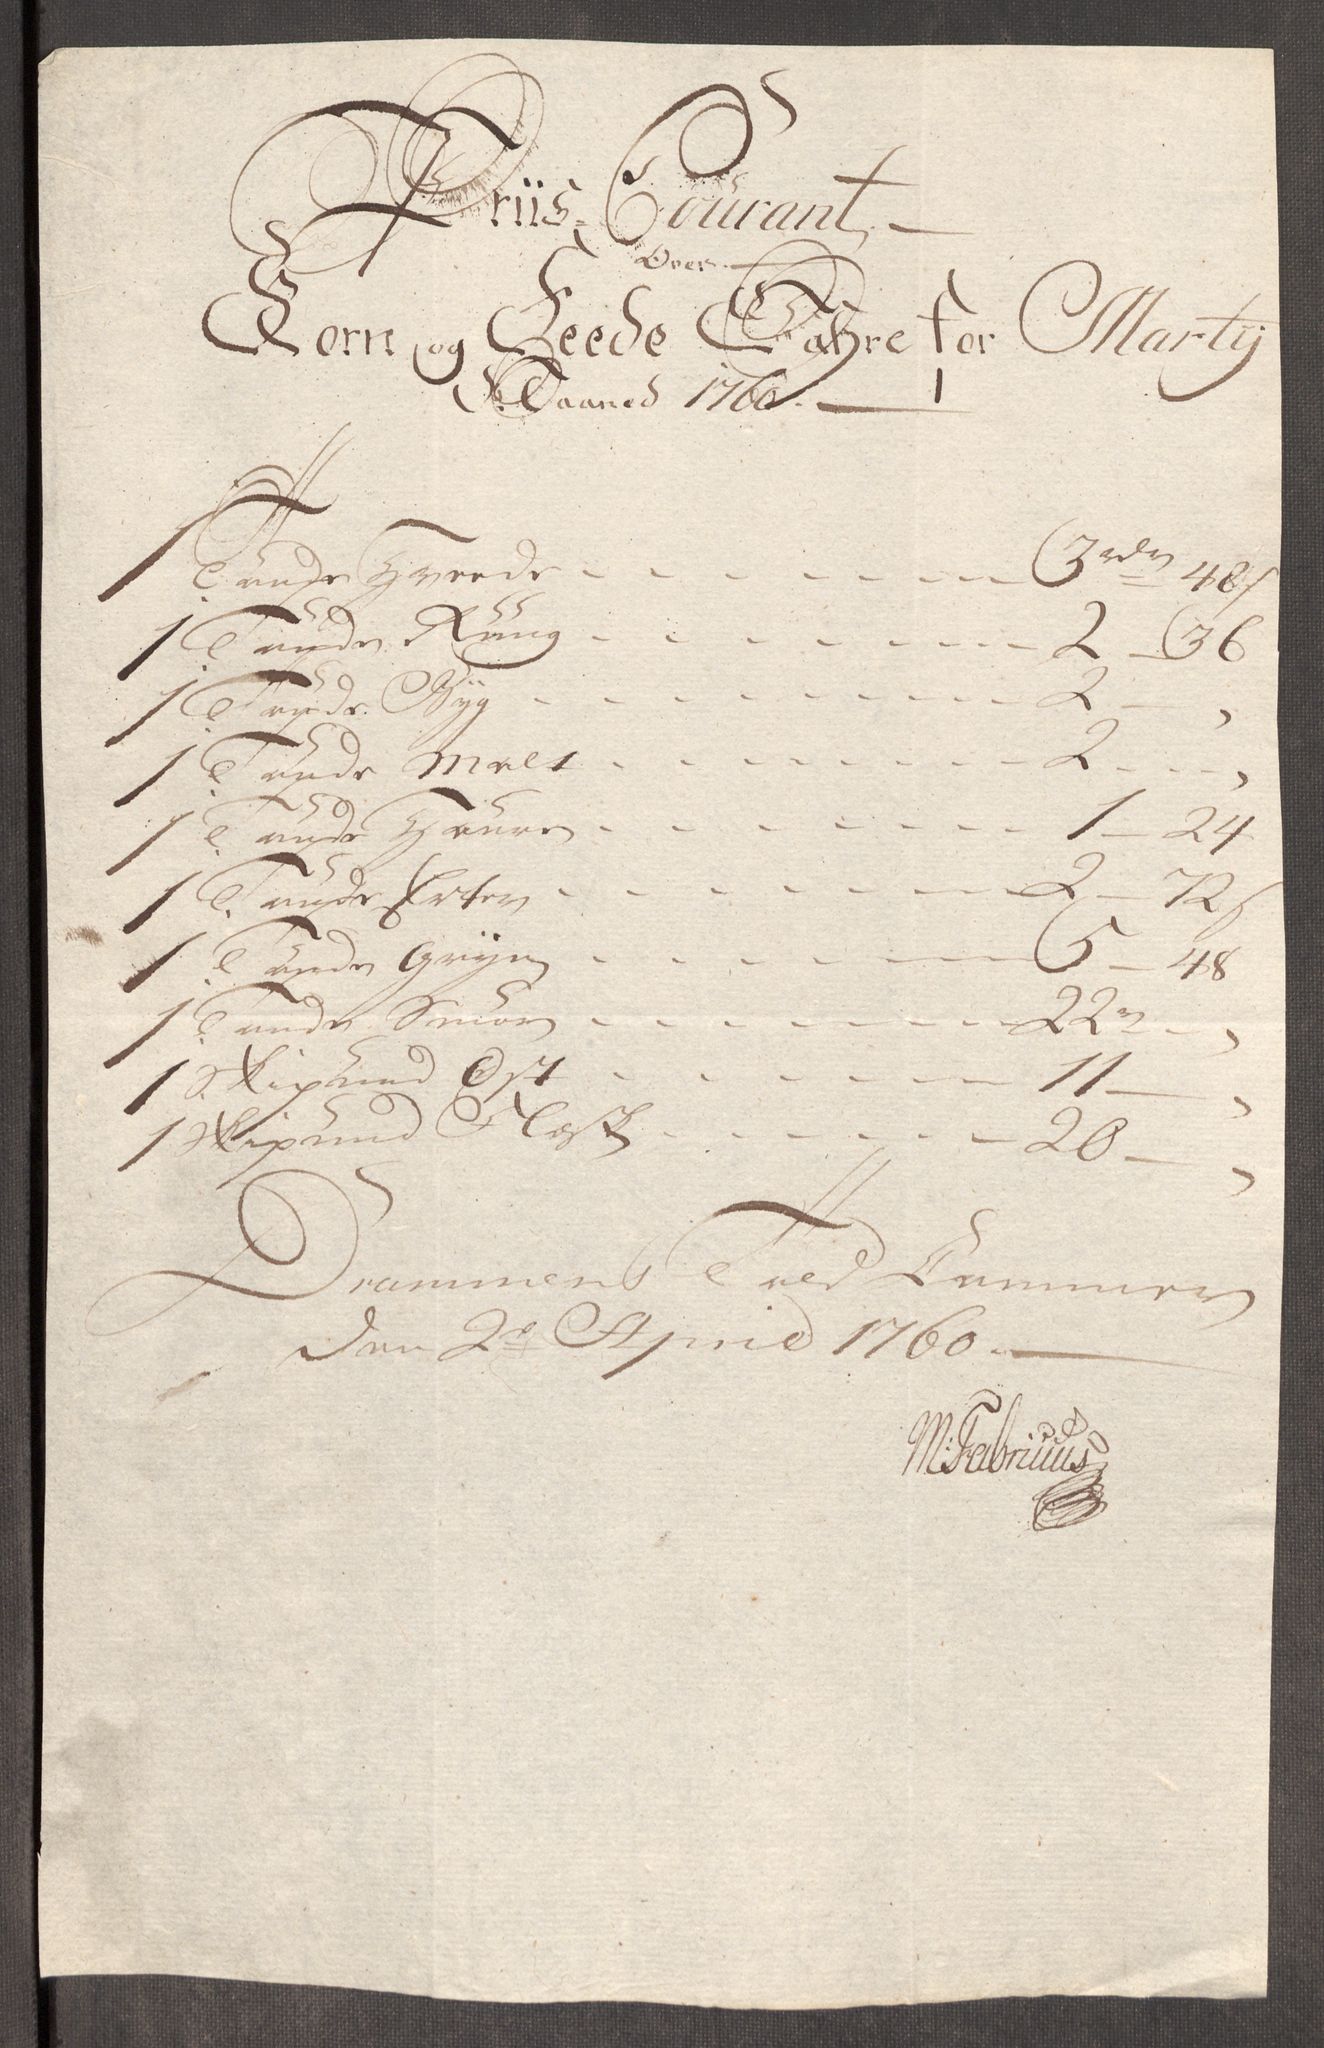 Priis Courant
Over
Korn og Feede Wahre for Marty
Maaned 1760.
1 Tunde Hvede - - - - - - 3 rdr 48 s
1 Tunde Rüug - - - - - - 2 - 36
1 Tunde Byg - - - - - - 2 - "
1 Tunde Malt - - - - - - 2 - "
1 Tunde Haure - - - - - - 1 - 24
1 Tunde Erter - - - - - - 2 - 72 s
1 Tunde Gryn - - - - - - 5 - 48
1 Tunde Smør - - - - - - 22 - "
1 Skipund Ost - - - - - - 11 - "
1 Skipund Flæsk - - - - - - 20 - "
Drammens Told Cammer
den 2de April 1760.
M: Fabritius